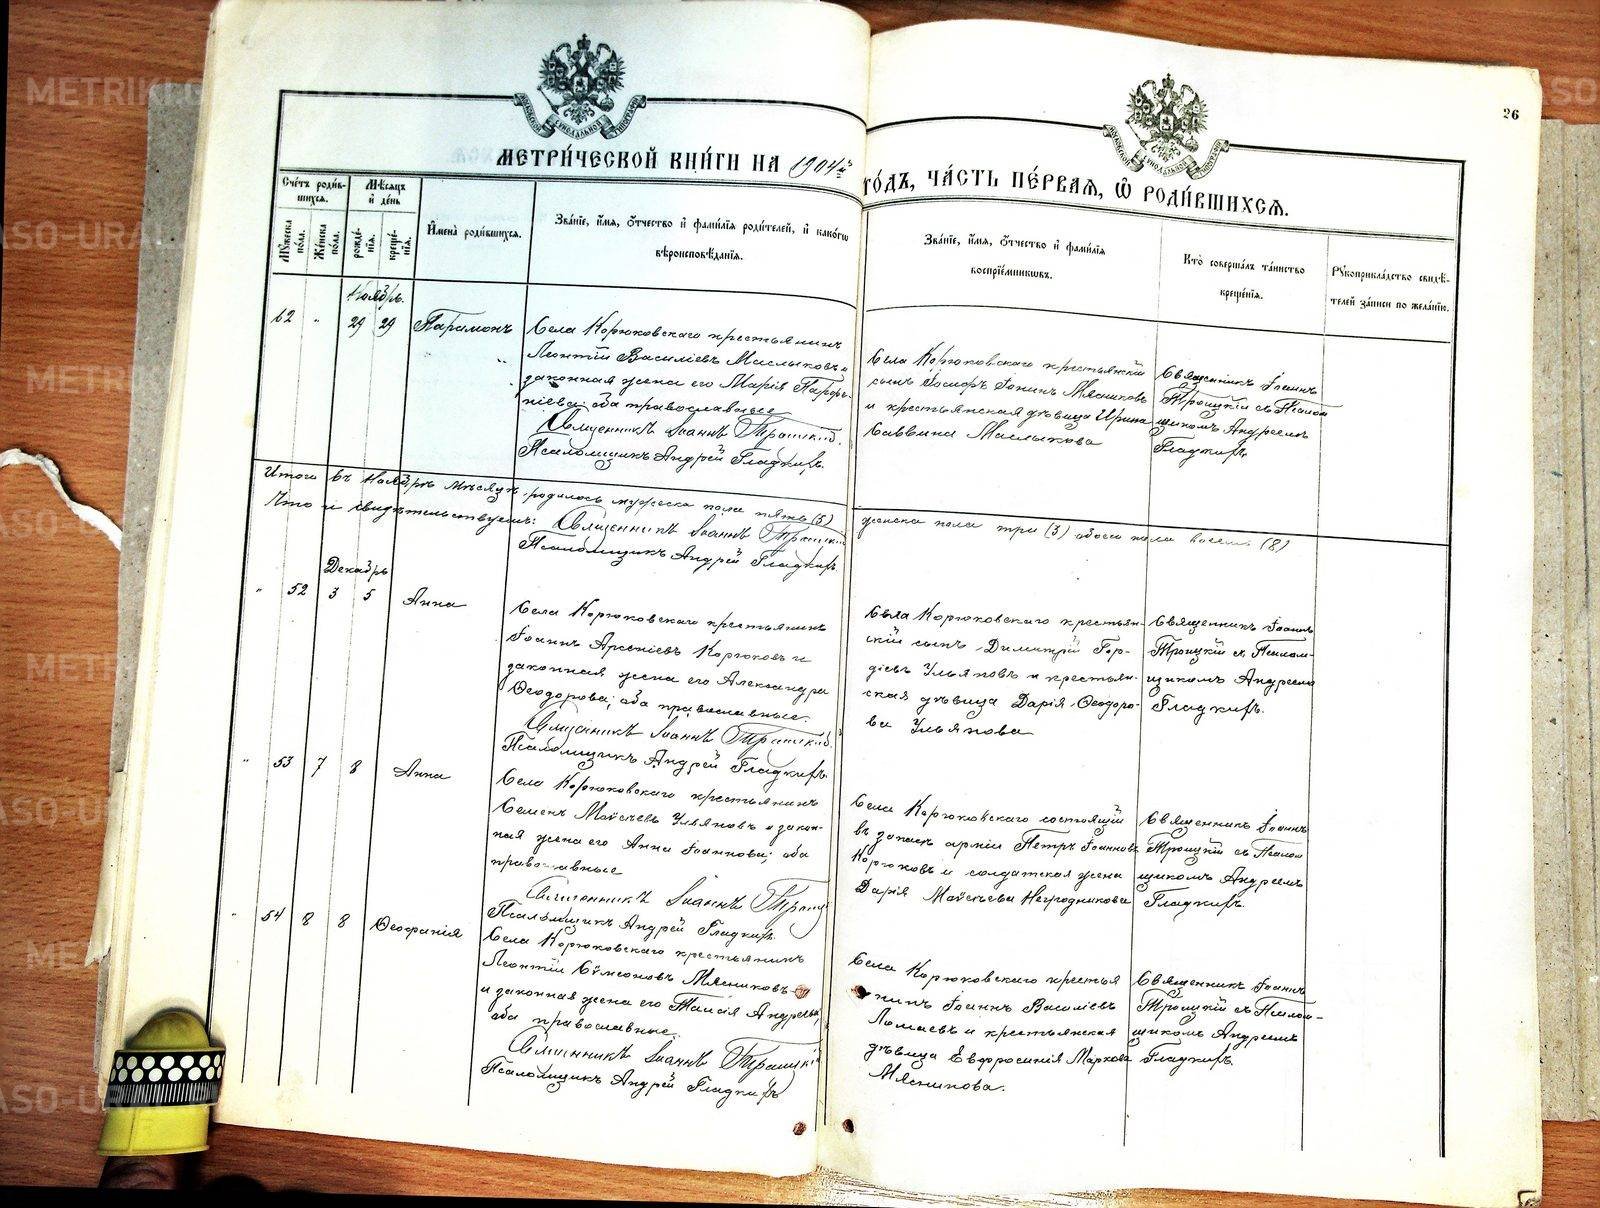 26
МЕТРИ́ЧЕСКОЙ КНИ́ГИ НА 1904й
ГО́ДЪ, ЧА́СТЬ ПЕ́РВАЯ, Ѡ РОДИ́ВШИХСѦ.
Сче́тъ роди́в-
шихся.
Мѣ́сяцъ
и де́нь
Мꙋ́жеска
пола.
Же́нска
пола.
рожде́-
нїя.
креще́-
нїя.
И́мена̀ роди́вшихся.
Зва́нїе, и́мя, ѻ́тчество и фами́лїя роди́телей, и како́гѡ
вѣроисповѣ́данїя.
Зва́нїе, и́мя, ѻ́тчество и фами́лїя
воспрїе́мниковъ.
Кто̀ соверша́лъ та́инство
креще́нїя.
Рꙋкоприкла́дство свидѣ́-
телей за́писи по жела́нїю.
Ноябрь.
62 " 29 29 Парамонъ
Села Корюковскаго крестьянинъ
Леонтій Василіевъ Маслыковъ и
законная жена его Марія Парфе-
ніева; оба православные
Священникъ Іоаннъ Троицкій.
Псаломщикъ Андрей Гладкихъ.
Села Корюковскаго крестьянскій
сынъ Іосифъ Іонинъ Мясниковъ
и крестьянская дѣвица Ирина
Саввина Маслыкова
Священникъ Іоаннъ
Троицкій съ Псалом
щикомъ Андреемъ
Гладкихъ.
Итого въ Ноябрѣ мѣсяцѣ родилось мужеска пола пять (5)
женска пола три (3) обоего пола восемь (8)
Что и свидѣтельствуемъ: Священникъ Іоаннъ Троицкій
Псаломщикъ Андрей Гладкихъ.
Декабрь
" 52 3 5 Анна
Села Корюковскаго крестьянинъ
Іоаннъ Арсеніевъ Корюковъ и
законная жена его Александра
Ѳеодорова; оба православные.
Священникъ Іоаннъ Троицкій
Псаломщикъ Андрей Гладкихъ.
Села Корюковскаго крестьян-
скій сынъ Димитрій Гор-
діевъ Ульяновъ и крестьян-
ская дѣвица Дарія Ѳеодоро-
ва Ульянова
Священникъ Іоаннъ
Троицкій съ Псалом-
щикомъ Андреемъ
Гладкихъ.
" 53 7 8 Анна
Села Корюковскаго крестьянинъ
Семенъ Моѵсеевъ Ульяновъ и закон-
ная жена его Анна Іоаннова; оба
православные
Священникъ Іоаннъ Троиц
Псаломщикъ Андрей Гладкихъ.
Села Корюковскаго состоящій
въ запасѣ арміи Петръ Іоанновъ
Корюковъ и солдатская жена
Дарія Моѵсеева Негродникова
Священникъ Іоаннъ
Троицкій съ Псалом
щикомъ Андреемъ
Гладкихъ.
" 54 8 8 Ѳеофанія
Села Корюковскаго крестьянинъ
Леонтій Сѵмеоновъ Мясниковъ
и законная жена его Таисія Андреева,
оба православные
Священникъ Іоаннъ Троицкій
Псаломщикъ Андрей Гладкихъ
Села Корюковскаго крестья
нинъ Іоаннъ Василіевъ
Ломаевъ и крестьянская
дѣвица Евфросинія Маркова
Мясникова.
Священникъ Іоаннъ
Троицкій съ Псалом-
щикомъ Андреемъ
Гладкихъ.